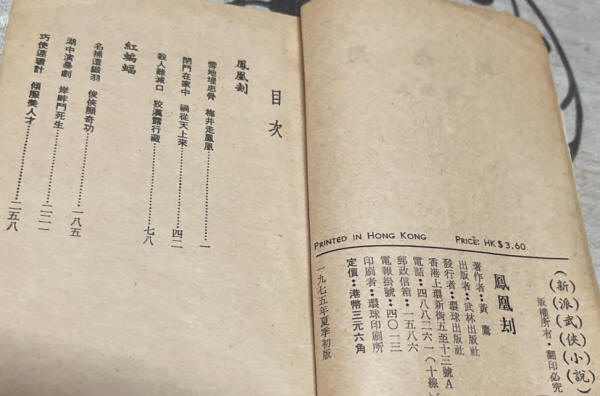 PRINTED IN HONG KONG PRICE: HK$3.60
(新)(派)(武)(俠)(小)(說)
版權所有·翻印必究
鳳凰刦
著作者：黃鷹
出版者：武林出版社
發行者：環球出版社
香港上環新街五至十三號A
電話：四八八二六一(十線)
郵政信箱：一五八六
電報掛號：四〇一三
印刷者：環球印刷所
定價：港幣三元六角
一九七五年夏季初版
目次
鳳凰刦
雪地埋忠骨 梅井走鳳凰……………一
閉門在家中 禍從天上來……………四二
殺人難滅口 狡漢露行藏……………七八
紅蝙蝠
名捕遭鎩羽 俊俠顯奇功……………一八五
湖中演劇 岸畔鬥死生……………二二一
巧使連環計 傾服美人才……………二五八